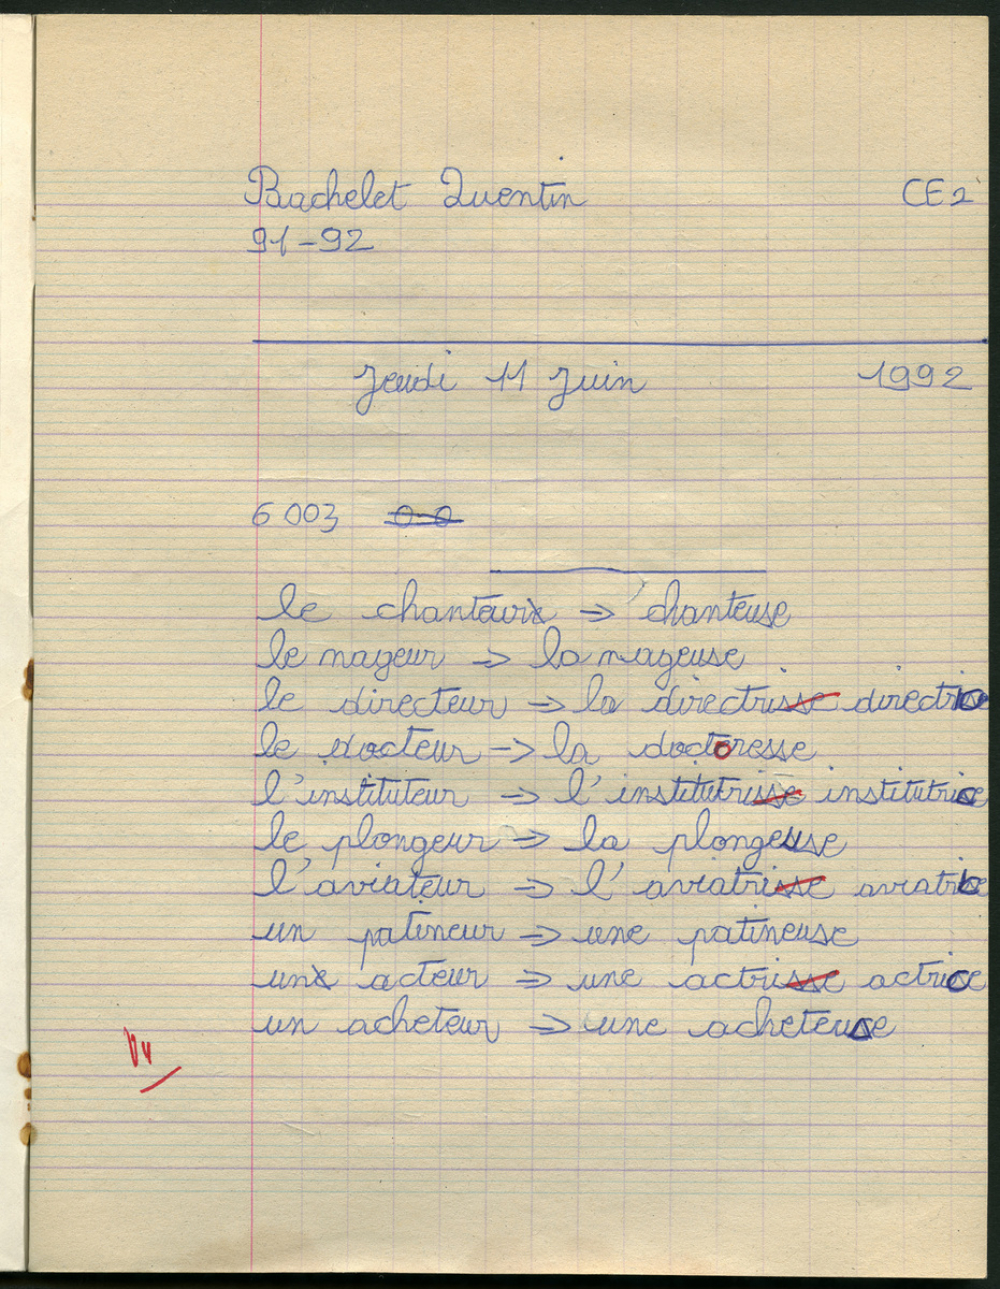 Bachelet Quentin CE2
91-92
jeudi 11 juin 1992
6 003
le chanteur → chanteuse
le nageur → la nageuse
le directeur → la directrisse directrice
le docteur → la doctoresse
l'instituteur → l'institutrisse institutrice
le plongeur → la plongeuse
l'aviateur → l'aviatrisse aviatrice
un patineur → une patineuse
un acteur → une actrisse actrice
un acheteur → une acheteuse
Vu